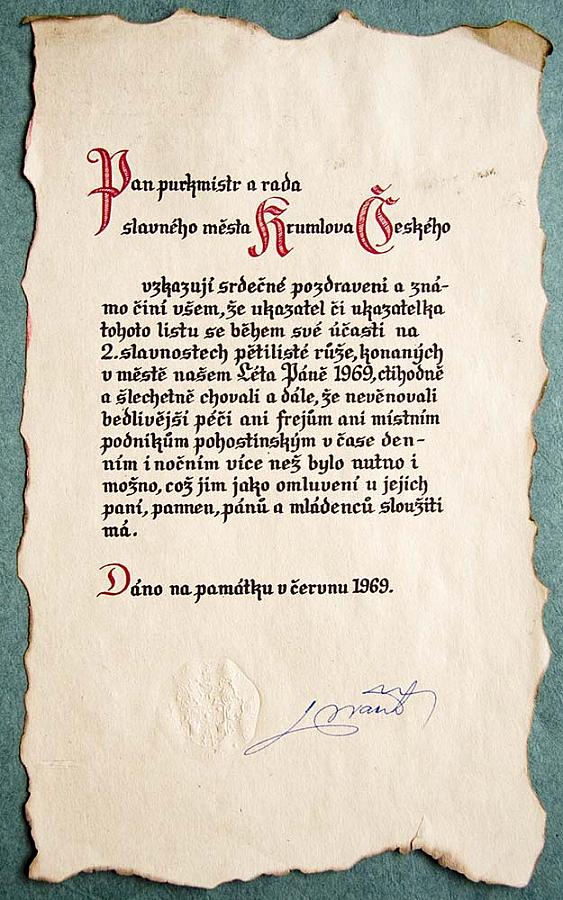 Pan purkmistr a rada
slavného města Krumlova Českého
vzkazují srdečné pozdravení a zná-
mo činí všem, že ukazatel či ukazatelka
tohoto listu se během své účasti na
2. slavnostech pětilisté růže, konaných
v městě našem Léta Páně 1969, ctihodně
a šlechetně chovali a dále, že nevěnovali
bedlivější péči ani frejům ani místním
podnikům pohostinským v čase den-
ním i nočním více než bylo nutno i
možno, což jim jako omluvení u jejich
paní, pannen, pánů a mládenců sloužiti
má.
Dáno na památku v červnu 1969.